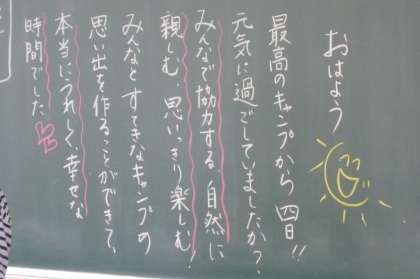 おはよう
最高のキャンプから四日!!
元気に過ごしていましたか?
みんなで協力する、自然に
親しむ、思いっきり楽しむ!
みんなとすてきなキャンプの
思い出を作ることができて、
本当にうれしく、幸せな
時間でした